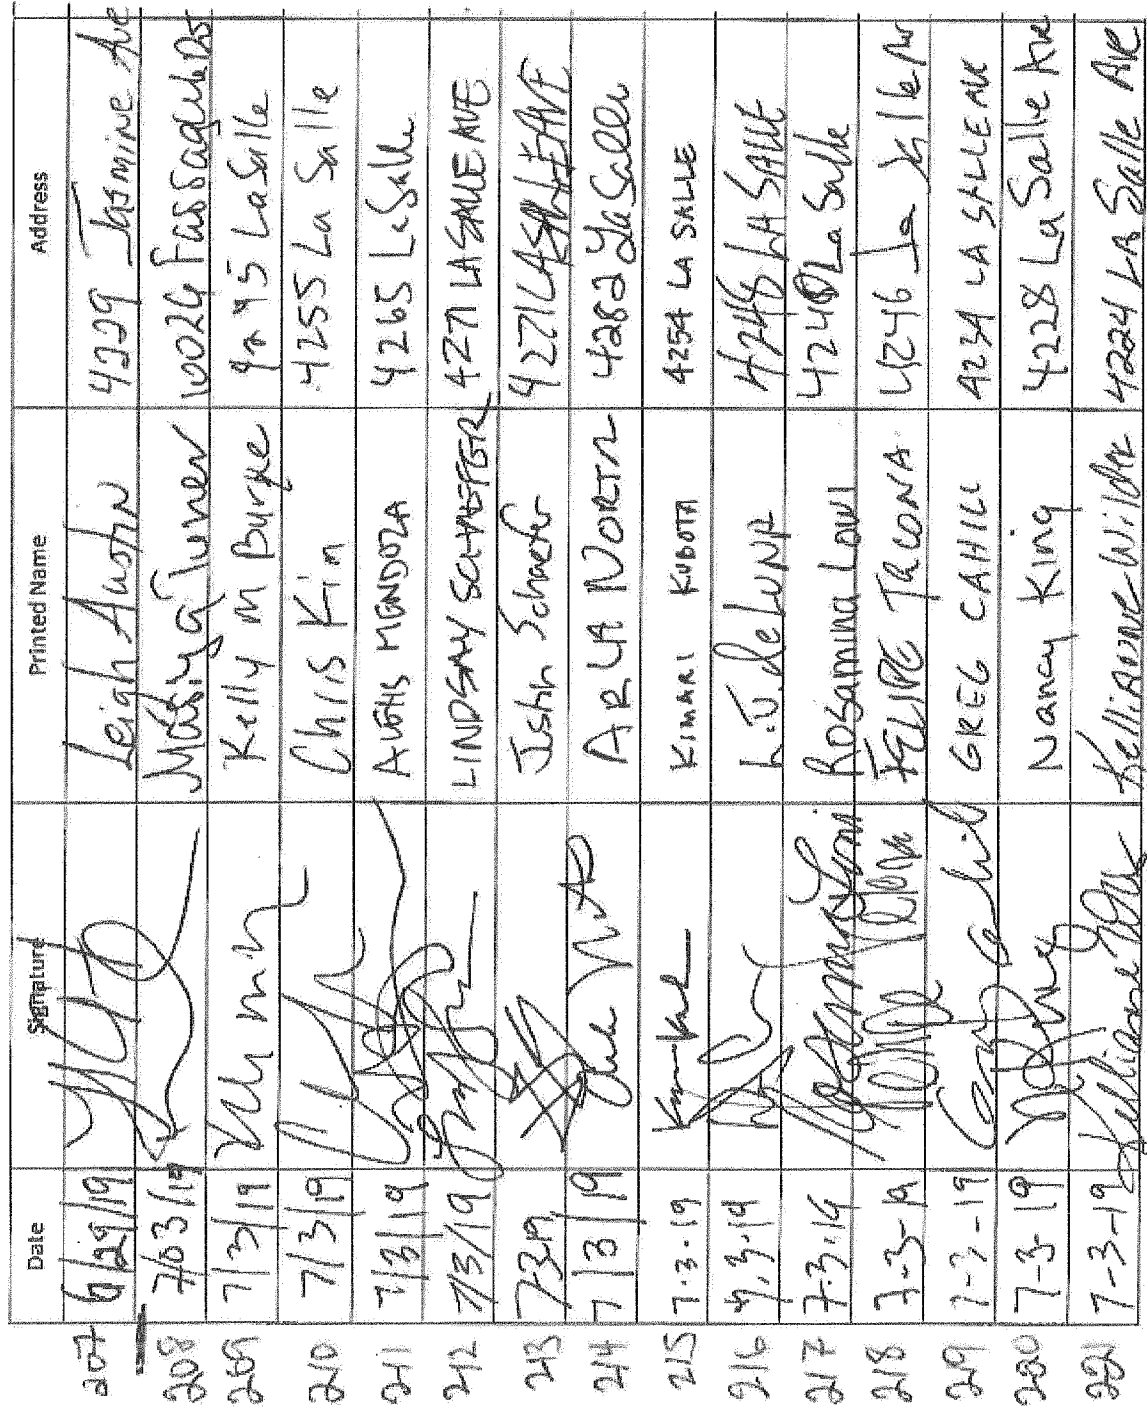 Date Signature Printed Name Address
207 6/29/19 Leigh Austin 4229 Jasmine Ave
208 7/03/19 Turner 10024
209 7/3/19 Kelly M Burke LaSalle
210 7/3/19 Chris Kim 4255 La Salle
211 7/3/19 MENDOZA 4265 LaSalle
212 7/3/19 LINDSAY SCHAEFER 4271 LASALLE AVE
213 7.3.19 Justin Schaefer 4271 LASALLE AVE
214 7/3/19 ARLA NORTN 4282 LaSalle
215 7.3.19 KIMARI KUBOTA 4254 LA SALLE
216 7.3.19 4248 LA SALLE
217 7.3.19 Rosamina 4240 La Salle
218 7-3-19 FELIPE TACONA 4246 La Salle Av
219 7-3-19 GREG CAHILL 4234 LA SALLE AVE
220 7-3-19 Nancy King 4228 La Salle Ave
221 7-3-19 Kellianne Wilder 4224 La Salle Ave